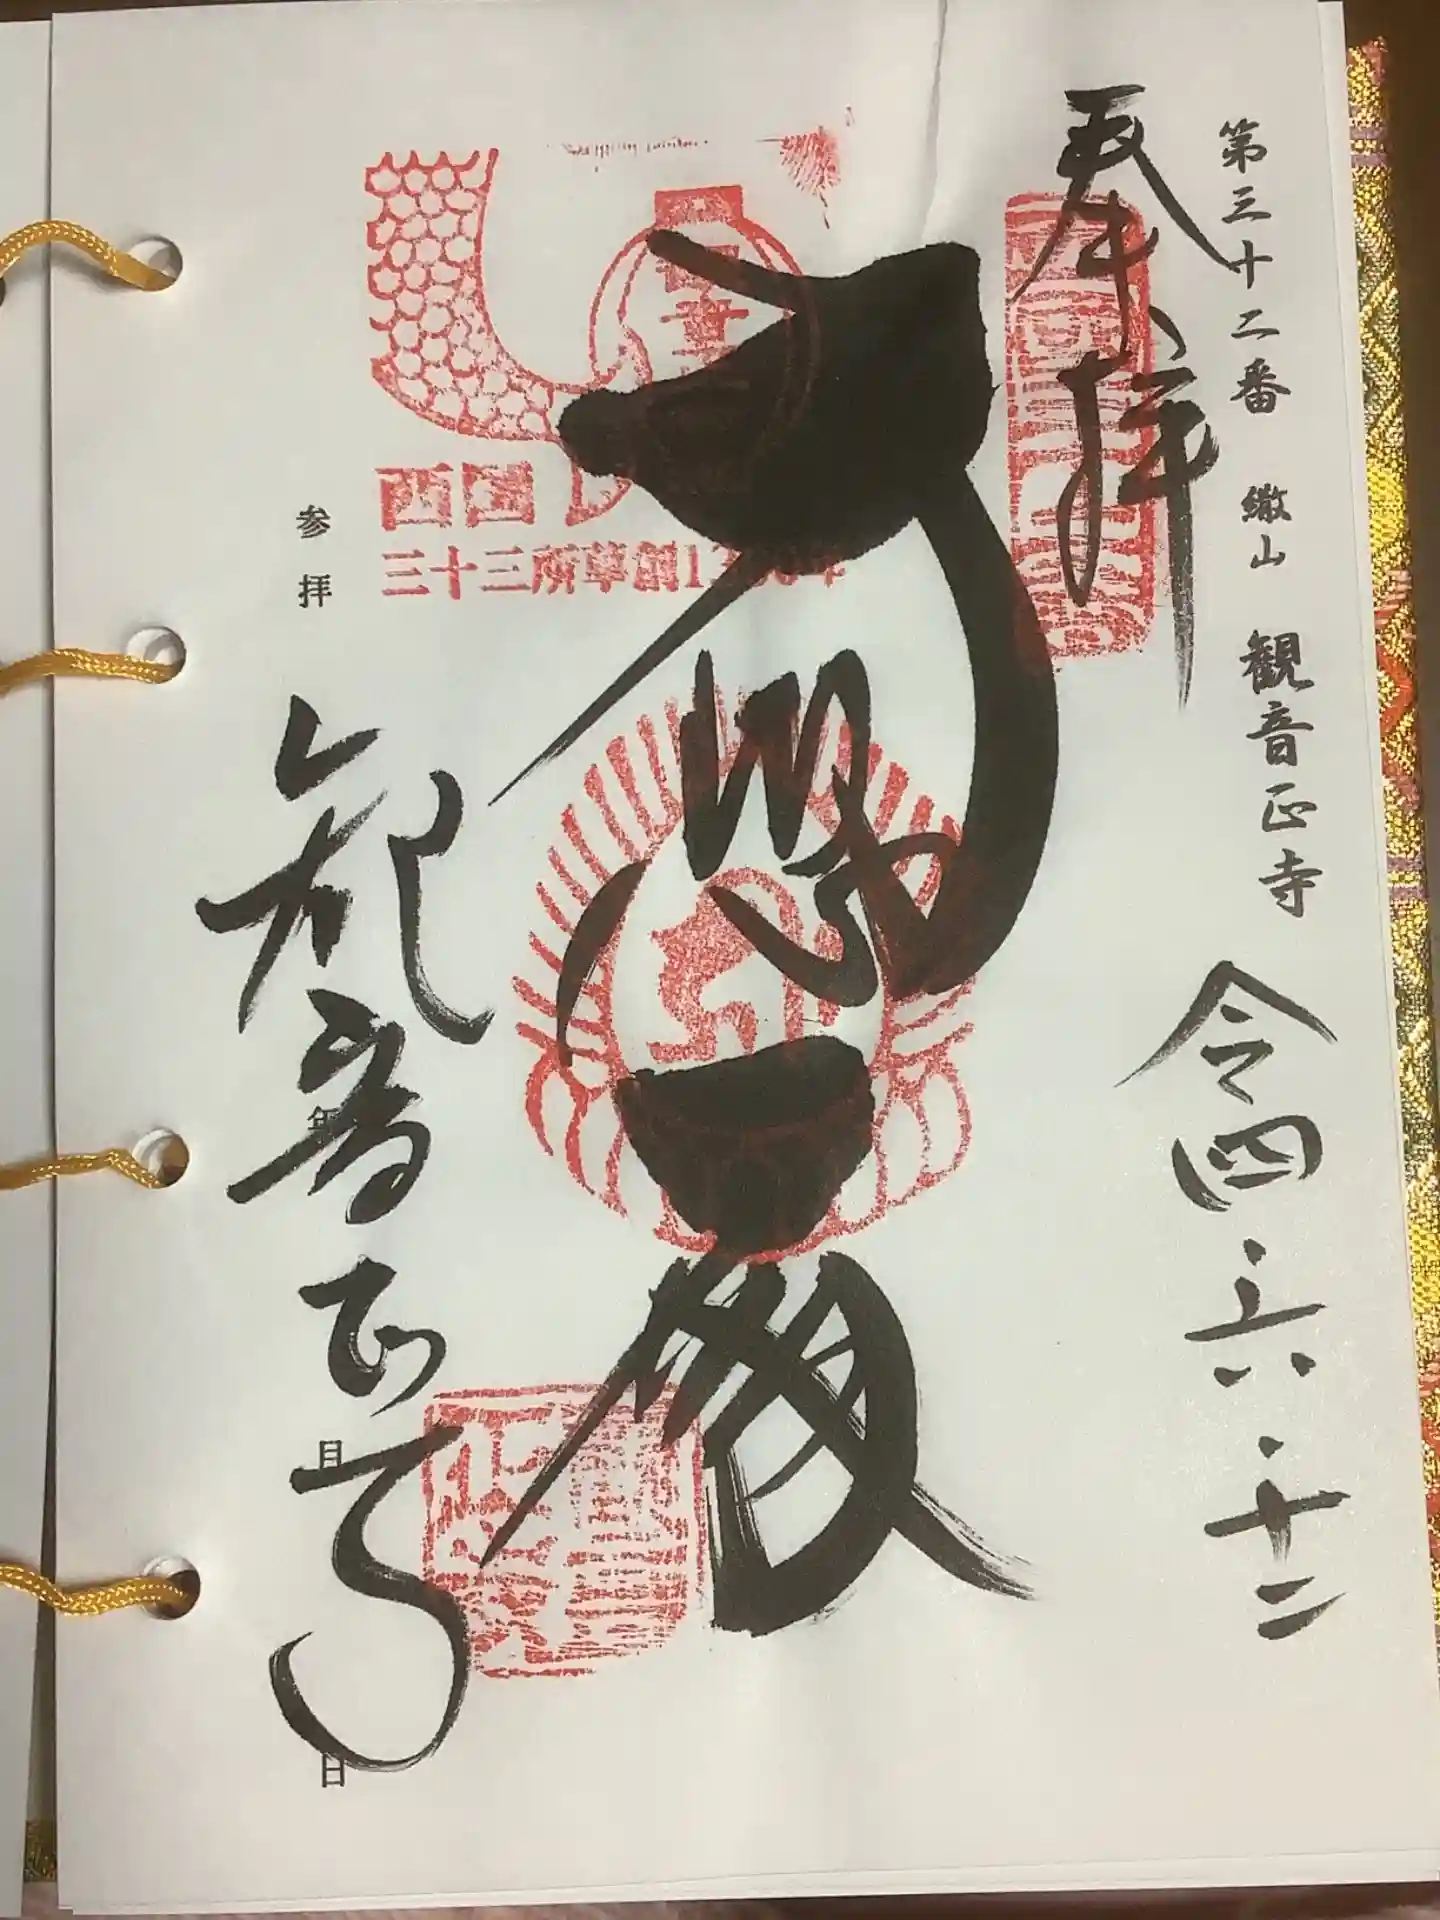 第三十二番 繖山 観音正寺
令四・六・十二
奉拝
西国
三十三所草創1300年
大悲殿
観音正寺
参拝
年
月
日